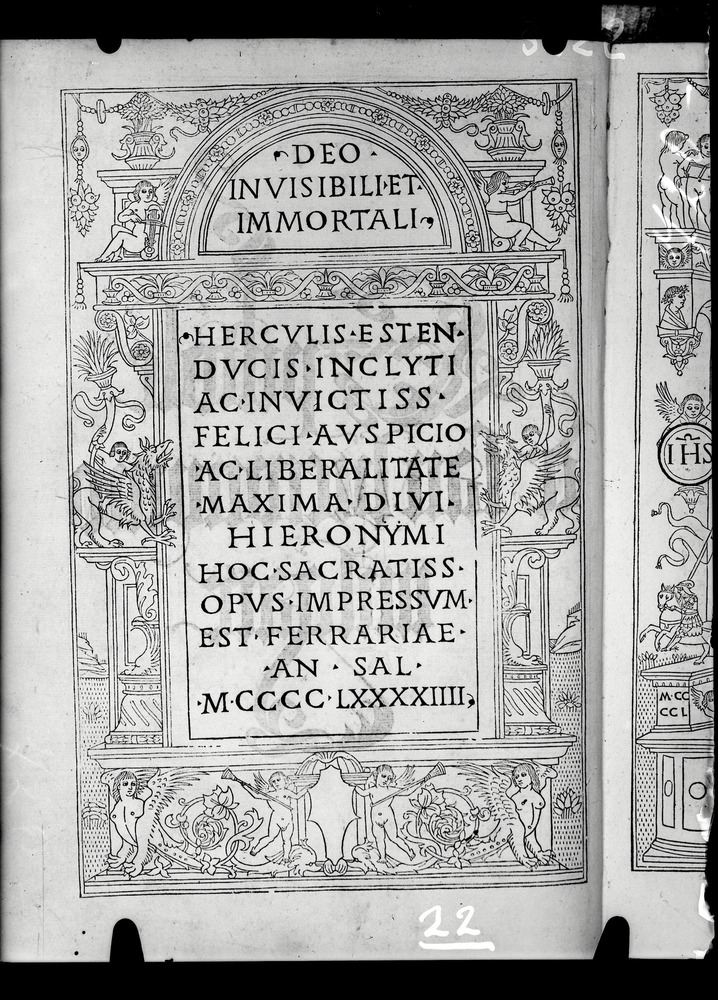 DEO ·
INVISIBILI·ET·
IMMORTALI
HERCVLIS·ESTEN·
DVCIS·INCLYTI
AC·INVICTISS·
FELICI·AVSPICIO
·AC·LIBERALITATE
·MAXIMA·DIVI·
HIERONYMI
HOC·SACRATISS·
OPVS·IMPRESSVM·
EST·FERRARIAE·
·AN · SAL·
·M·CCCC·LXXXXIIII
22
IHS
M·CC
CCL